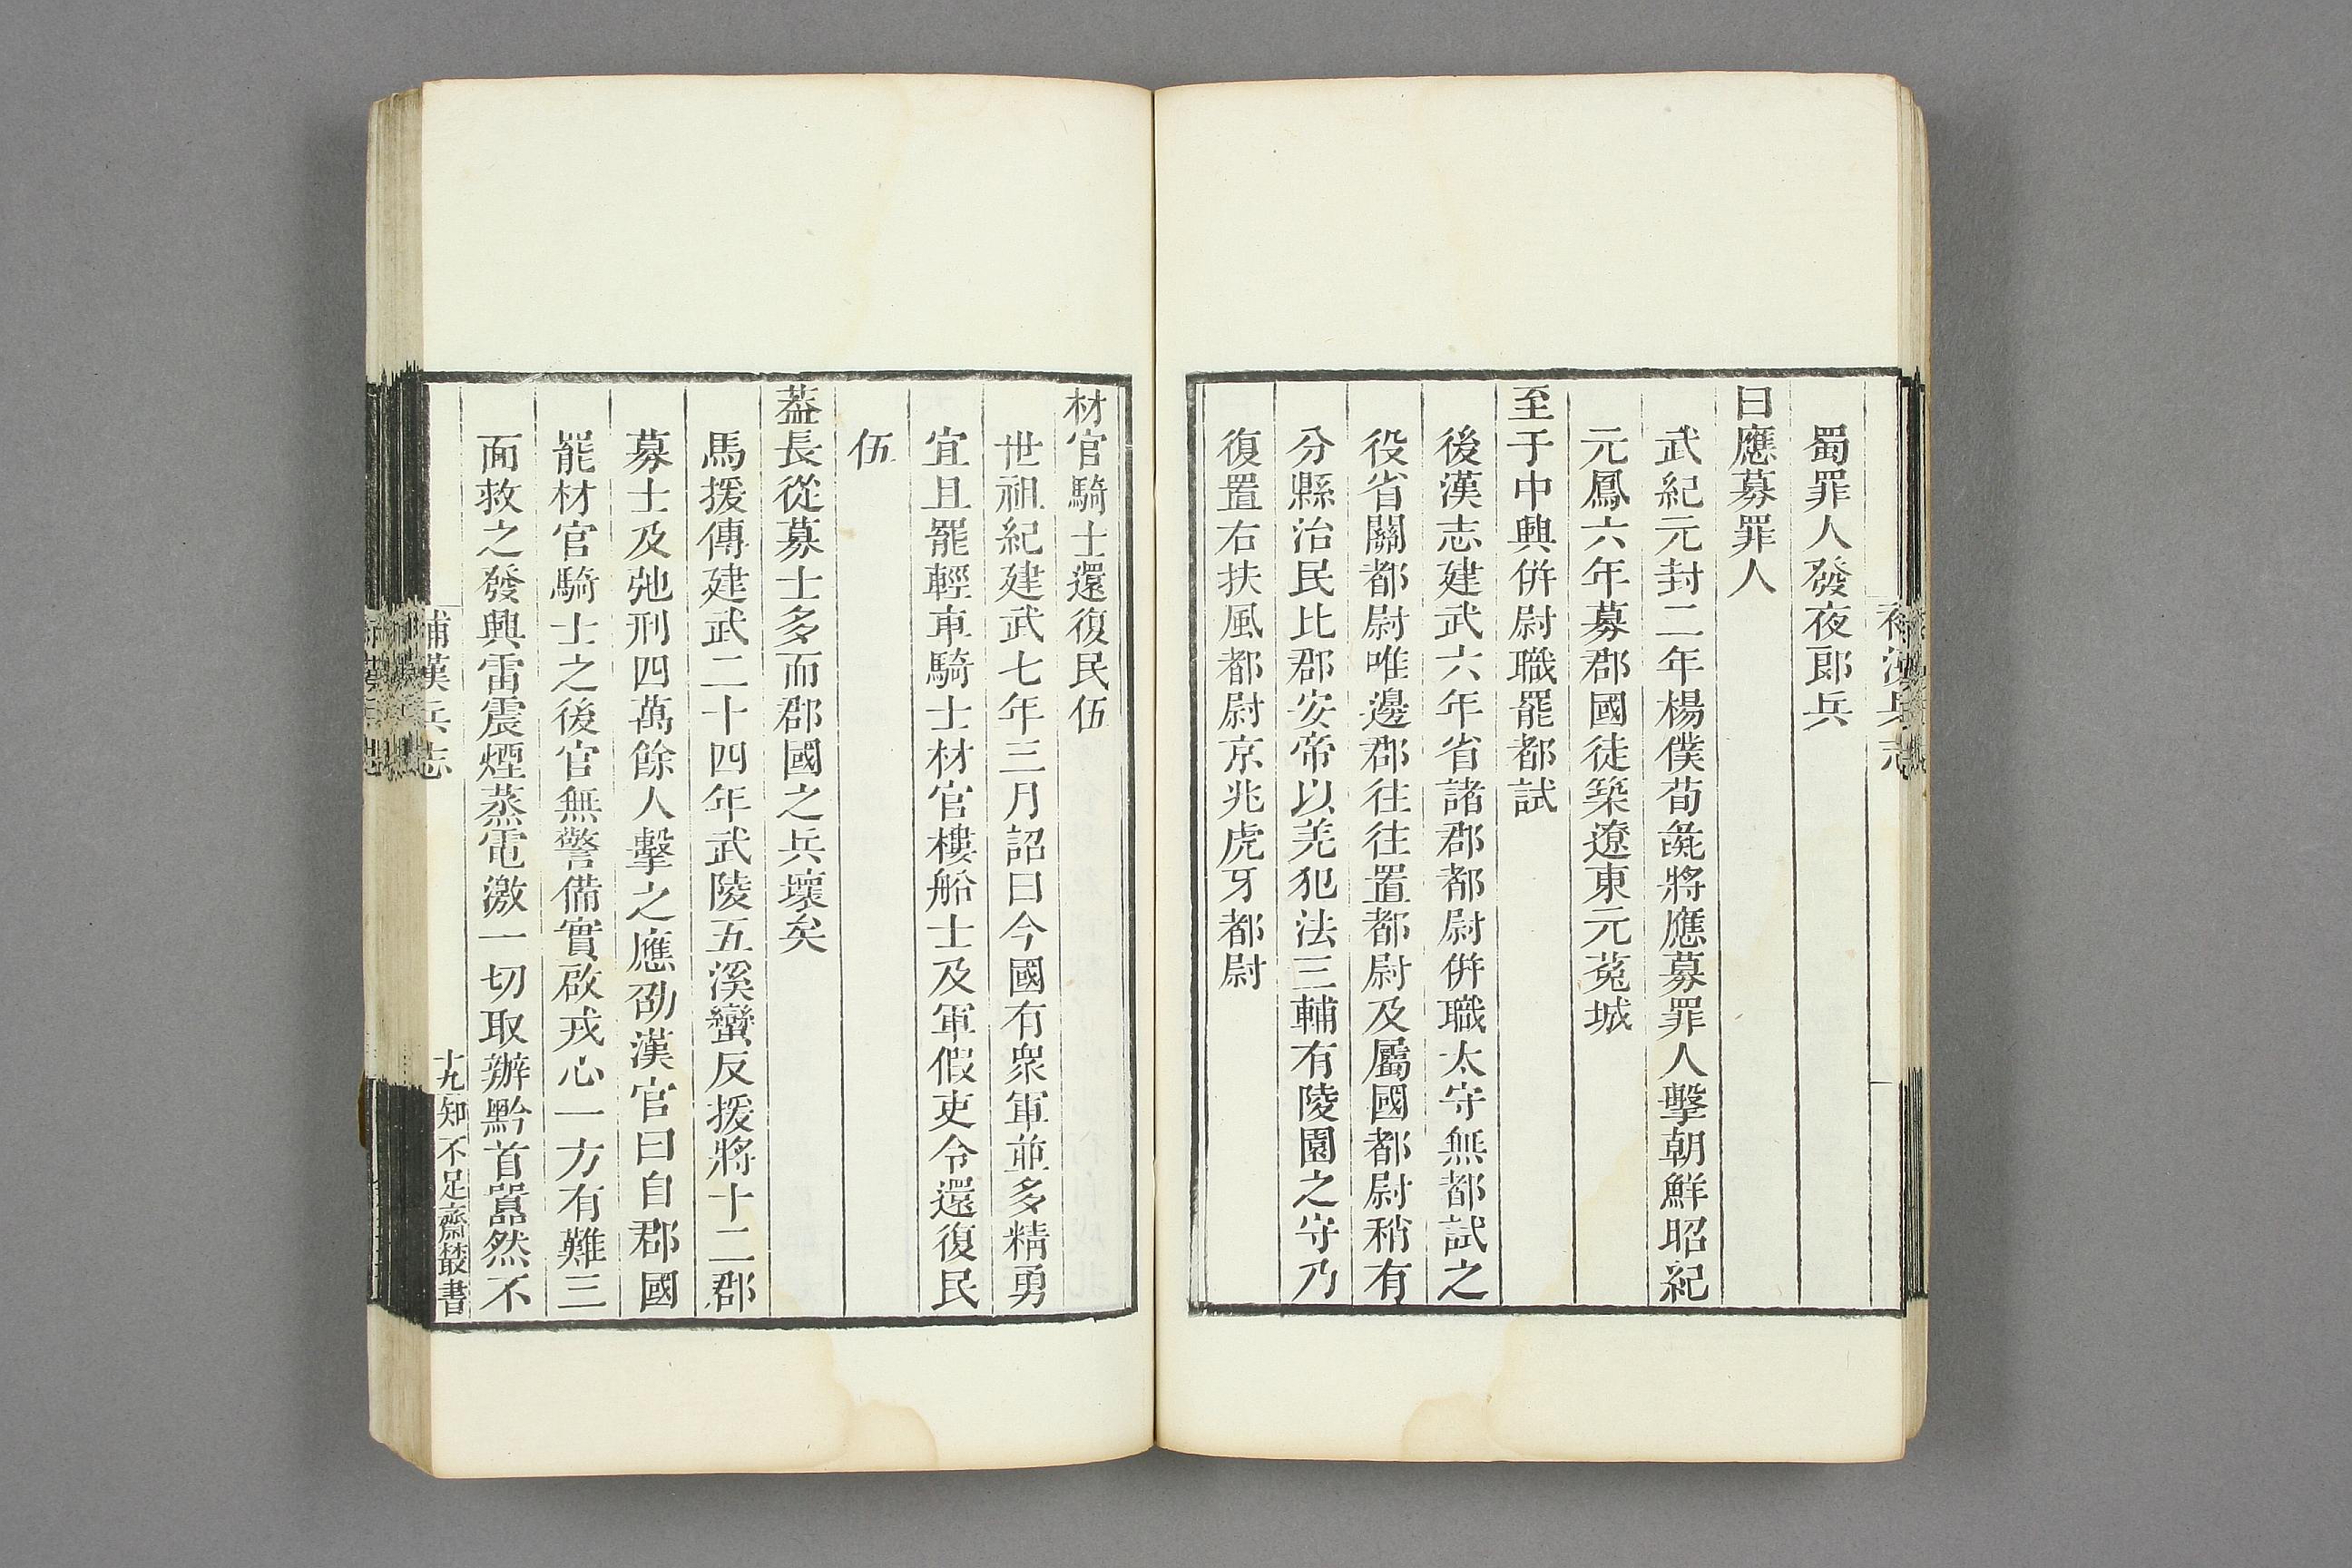 補漢兵志
蜀罪人發夜郎兵
曰應募罪人
武紀元封二年楊僕荀彘將應募罪人擊朝鮮昭紀
元鳳六年募郡國徒築遼東元菟城
至于中興併尉職罷都試
後漢志建武六年省諸郡都尉併職太守無都試之
役省關都尉唯邊郡往往置都尉及屬國都尉稍有
分縣治民比郡安帝以羌犯法三輔有陵園之守乃
復置右扶風都尉京兆虎牙都尉
材官騎士還復民伍
世祖紀建武七年三月詔曰今國有衆軍並多精勇
宜且罷輕車騎士材官樓船士及軍假吏令還復民
伍
葢長從募士多而郡國之兵壞矣
馬援傳建武二十四年武陵五溪蠻反援將十二郡
募士及弛刑四萬餘人擊之應劭漢官曰自郡國
罷材官騎士之後官無警備實啟戎心一方有難三
面救之發興雷震煙蒸電激一切取辦黔首囂然不
補漢兵志
十九
知不足齋叢書